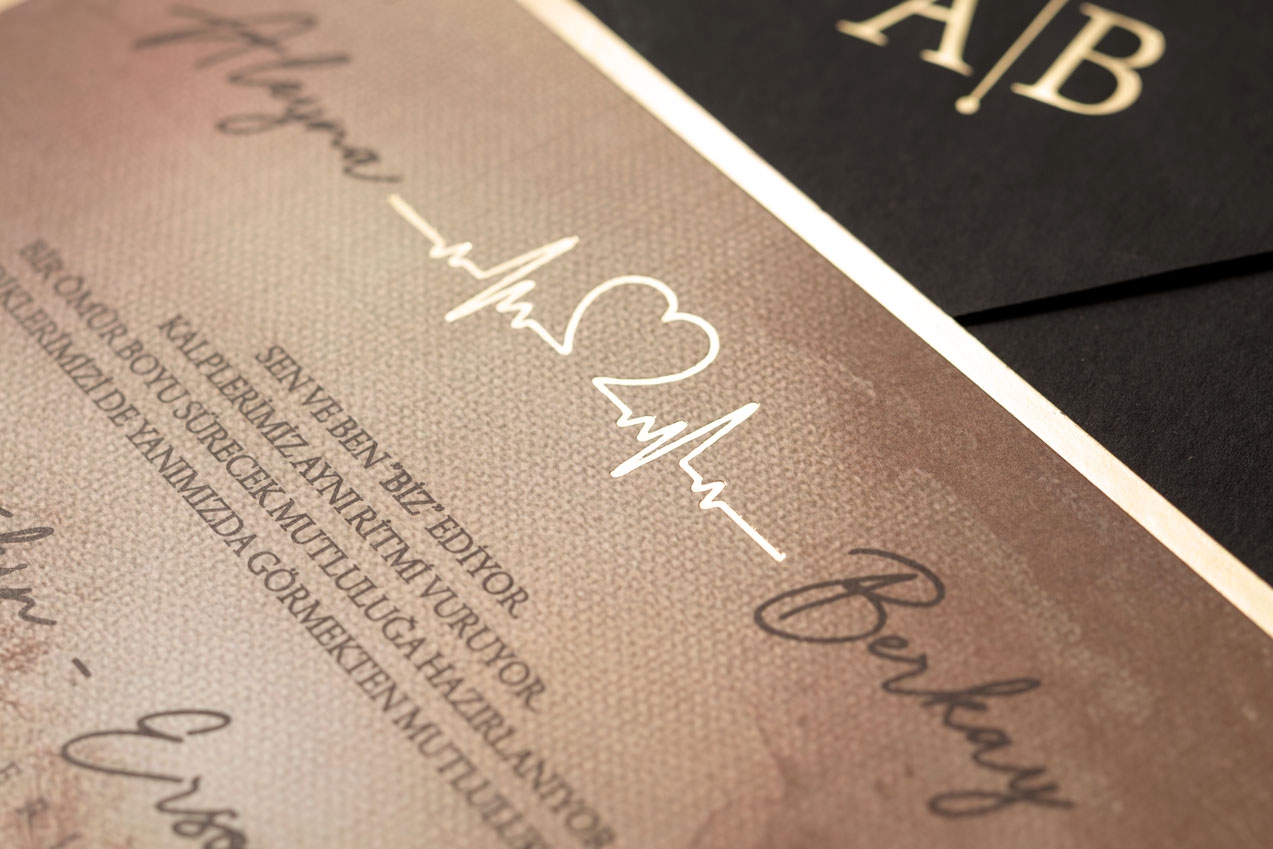 A|B
Aleyna
Berkay
SEN VE BEN 'BİZ' EDİYOR
KALPLERİMİZ AYNI RİTMİ VURUYOR
BİR ÖMÜR BOYU SÜRECEK MUTLULUĞA HAZIRLANIYOR
DE YANIMIZDA GÖRMEKTEN